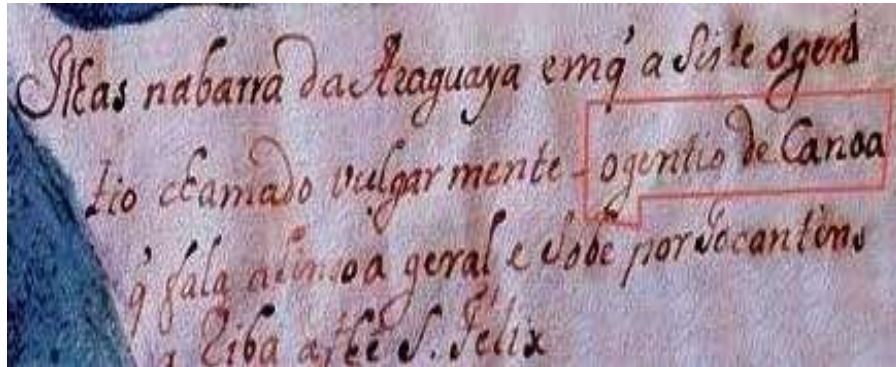 Ilhas nabarra da Araguaya emq̃ asiste ogen
tio chamado vulgarmente - ogentio de Canoa
q̃ fala alingoa geral e sobe por Tocantins
a Riba athe S. Felix